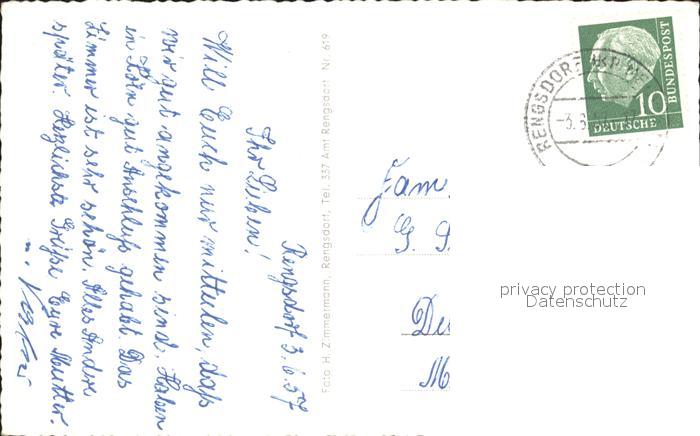 Rengsdorf 3.6.57
Ihr Lieben!
Will Euch nur mitteilen, daß
wir gut angekommen sind. Haben
in Köln gut Anschluß gehabt. Das
Zimmer ist sehr schön. Alles Andere
später. Herzlichste Grüße Eure Mutter.
u.
Foto H. Zimmermann, Rengsdorf, Tel. 337 Amt Rengsdorf Nr. 619
Fam.
G. S
De
M
RENGSDORF
-3.6.57
10
DEUTSCHE
BUNDESPOST
privacy protection
Datenschutz